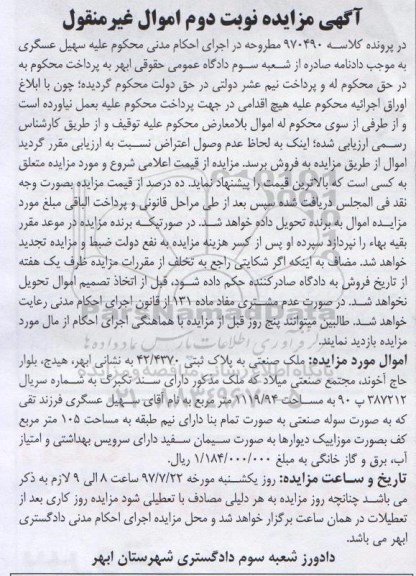 آگهی مزایده نوبت دوم اموال غیرمنقول
در پرونده کلاسه ۹۷۰۴۹۰ مطروحه در اجرای احکام مدنی محکوم علیه سهیل عسگری
به موجب دادنامه صادره از شعبه سوم دادگاه عمومی حقوقی ابهر به پرداخت محکوم به
در حق محکوم له و پرداخت نیم عشر دولتی در حق دولت محکوم گردیده؛ چون با ابلاغ
اوراق اجرائیه محکوم علیه هیچ اقدامی در جهت پرداخت محکوم علیه بعمل نیاورده است
و از طرفی از سوی محکوم له اموال بلامعارض محکوم علیه توقیف و از طریق کارشناس
رسمی ارزیابی شده؛ اینک به لحاظ عدم وصول اعتراض نسبت به ارزیابی مقرر گردید
اموال از طریق مزایده به فروش برسد. مزایده از قیمت اعلامی شروع و مورد مزایده متعلق
به کسی است که بالاترین قیمت را پیشنهاد نماید. ده درصد از قیمت مزایده بصورت وجه
نقد فی المجلس دریافت شده سپس بعد از طی مراحل قانونی و پرداخت الباقی مبلغ مورد
مزایده اموال به برنده تحویل داده خواهد شد. در صورتیکه برنده مزایده در موعد مقرر
بقیه بهاء را نپردازد سپرده او پس از کسر هزینه مزایده به نفع دولت ضبط و مزایده تجدید
خواهد شد. مضاف به اینکه اگر شکایتی راجع به تخلف از مقررات مزایده ظرف یک هفته
از تاریخ فروش به دادگاه صادرکننده حکم داده شود، قبل از اتخاذ تصمیم اموال تحویل
نخواهد شد. در صورت عدم مشتری مفاد ماده ۱۳۱ از قانون اجرای احکام مدنی رعایت
خواهد شد. طالبین میتوانند پنج روز قبل از مزایده با هماهنگی اجرای احکام از مال مورد
مزایده بازدید نمایند.
اموال مورد مزایده: ملک صنعتی به پلاک ثبتی ۴۲/۴۳۷۰ به نشانی ابهر، هیدج، بلوار
حاج آخوند، مجتمع صنعتی میلاد که ملک مذکور دارای سند تکبرگ به شماره سریال
۳۸۷۲۱۲ پ ۹۰ به مساحت ۲۱۱۹/۹۴ متر مربع به نام آقای سهیل عسگری فرزند تقی
که به صورت سوله صنعتی به صورت تمام بنا دارای نیم طبقه به مساحت ۱۰۵ متر مربع
کف بصورت موزاییک دیوارها به صورت سیمان سفید دارای سرویس بهداشتی و امتیاز
آب، برق و گاز خانگی به مبلغ ۱/۱۸۴/۰۰۰/۰۰۰ ریال.
تاریخ و ساعت مزایده: روز یکشنبه مورخه ۹۷/۷/۲۲ ساعت ۸ الی ۹ لازم به ذکر
می باشد چنانچه روز مزایده به هر دلیلی مصادف با تعطیلی شود مزایده روز کاری بعد از
تعطیلات در همان ساعت برگزار خواهد شد و محل مزایده اجرای احکام مدنی دادگستری
ابهر می باشد.
دادورز شعبه سوم دادگستری شهرستان ابهر